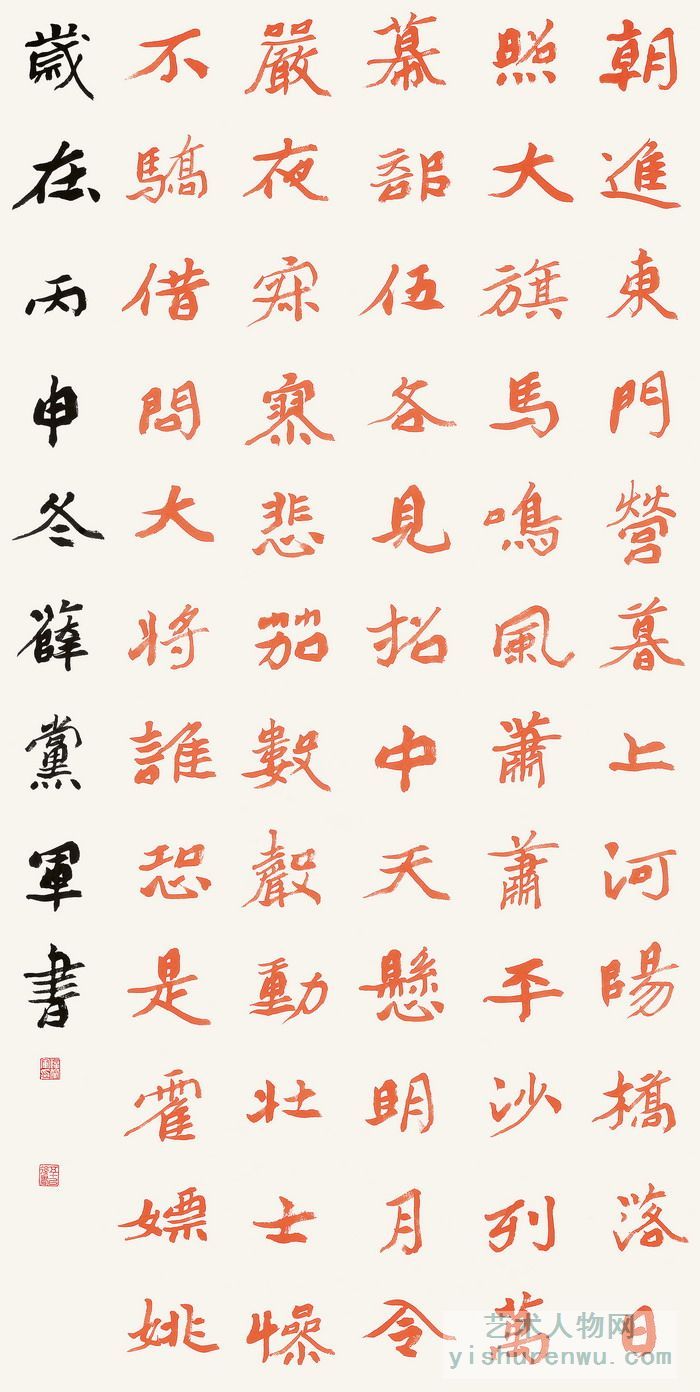 朝進東門營暮上河陽橋落日
照大旗馬鳴風蕭蕭平沙列萬
幕部伍各見招中天懸明月令
嚴夜寂寥悲笳數聲動壯士慘
不驕借問大將誰恐是霍嫖姚
歲在丙申冬薛黨軍書
艺术人物网
yishurenwu.com